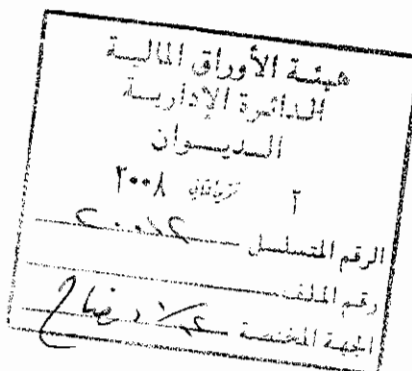 هيئة الأوراق المالية
الدائرة الإدارية
الديوان
٢٠٠٨
الرقم المتسلسل
رقم الملف
الجهة المختصة